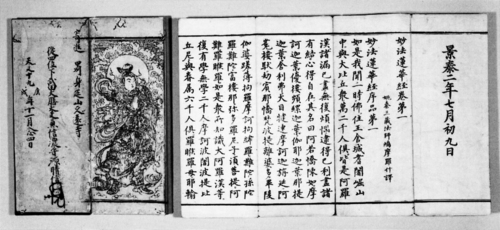 景泰二年七月初九日
妙法蓮華經卷第一
姚秦三藏法師鳩摩羅什譯
妙法蓮華經序品第一
如是我聞一時佛住王舍城耆闍崛山
中與大比丘衆萬二千人俱皆是阿羅
漢諸漏已盡無復煩惱逮得己利盡諸
有結心得自在其名曰阿若憍陳如摩
訶迦葉優樓頻螺迦葉伽耶迦葉那提
迦葉舍利弗大目揵連摩訶迦旃延阿
㝹樓馱劫賓那憍梵波提離婆多畢陵
伽婆蹉薄拘羅摩訶拘絺羅難陀孫陀
羅難陀富樓那彌多羅尼子須菩提阿
難羅睺羅如是衆所知識大阿羅漢等
復有學無學二千人摩訶波闍波提比
丘尼與眷屬六千人俱羅睺羅母耶輸